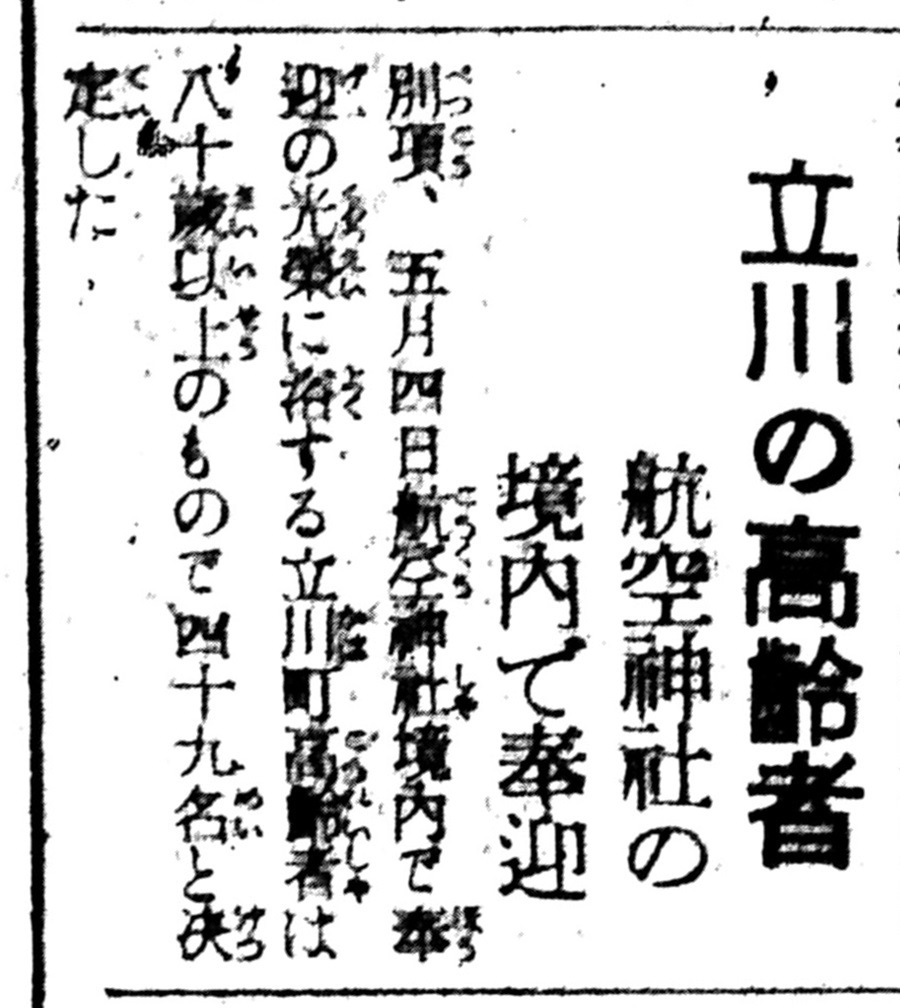 立川の高齢者
航空神社の
境内で奉迎
別項、五月四日航空神社境内で奉
迎の光榮に浴する立川町高齢者は
八十歳以上のもので四十九名と決
定した